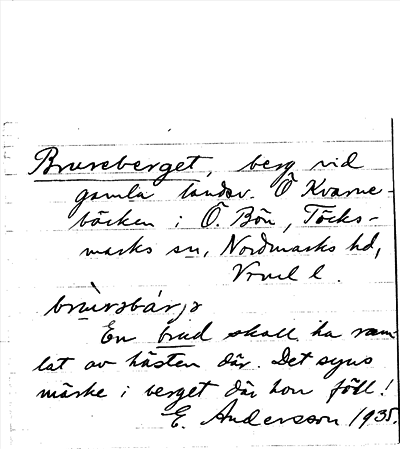 Brureberget, berg vid
gamla landsv. Ö Kvarne-
bäcken i Ö. Bön, Töcks-
marks sn, Nordmarks hd,
Vrml l.
En brud skall ha ram-
lat av hästen där. Det syns
märke i berget där hon föll!
E. Andersson 1935.